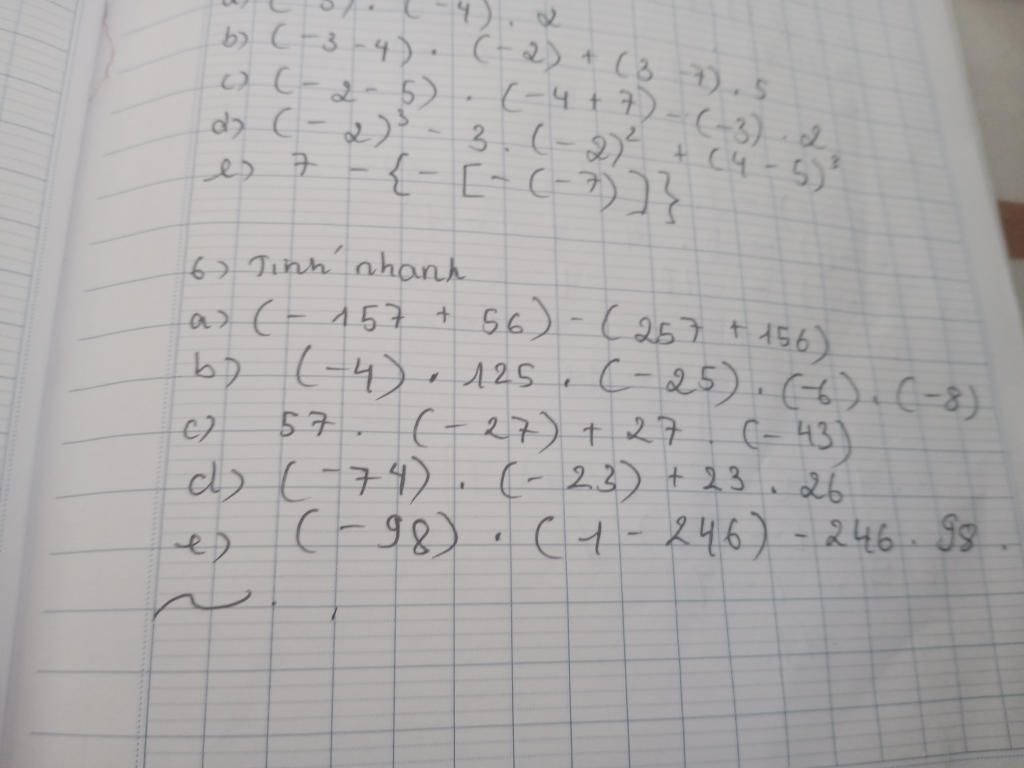 a) (-3) . (-4) . 2
b) (-3-4) . (-2) + (3-7) . 5
c) (-2-5) . (-4+7) - (-3) . 2
d) (-2)³ - 3 . (-2)² + (4-5)³
e) 7 - {-[-(-7)]}
6) Tính nhanh
a) (-157 + 56) - (257 + 156)
b) (-4) . 125 . (-25) . (-6) . (-8)
c) 57 . (-27) + 27 . (-43)
d) (-74) . (-23) + 23 . 26
e) (-98) . (1 - 246) - 246 . 98 .